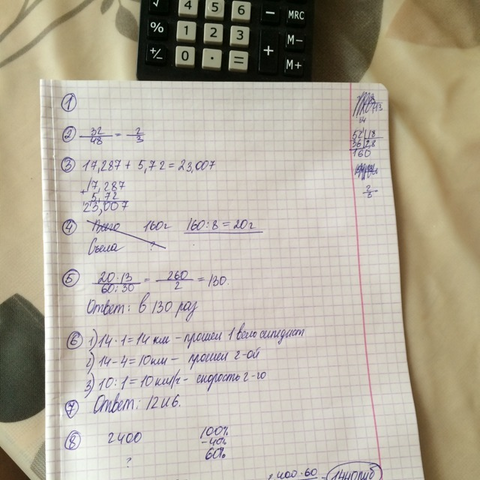 √ 4 5 6 − MRC
% 1 2 3 + M−
+/− 0 · = M+
1
2 32/48 = 2/3
3 17,287 + 5,72 = 23,007
17,287
+ 5,72
23,007
4 Всего 160г 160:8=20г
Съела ?
5 20·13/60:30 = 260/2 = 130
Ответ: в 130 раз
6 1) 14·1=14 км – прошел 1 велосипедист
2) 14-4=10км – прошел 2-ой
3) 10:1=10 км/ч – скорость 2-го
7 Ответ: 12 и 6.
8 2400 100%
-40%
? 60%
1440 руб